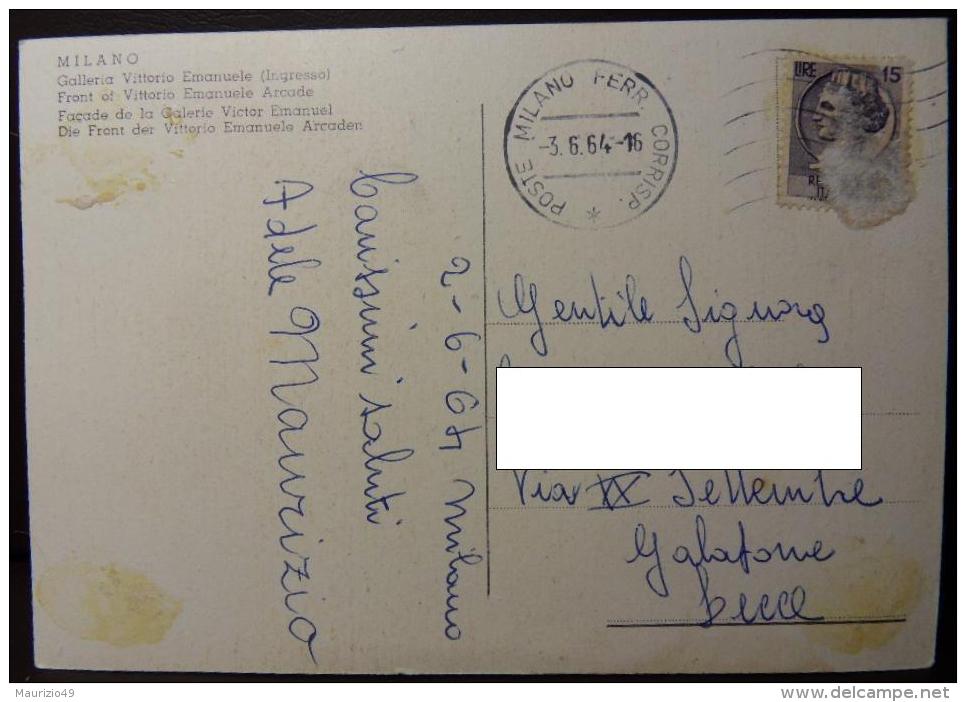 MILANO
Galleria Vittorio Emanuele (Ingresso)
Front of Vittorio Emanuele Arcade
Façade de la Galerie Victor Emanuel
Die Front der Vittorio Emanuele Arcaden
POSTE MILANO FERR. CORRISP.
-3.6.64-16
LIRE 15
2-6-64 Milano
Carissimi saluti
Adele Maurizio
Gentile Signora
Via XX Settembre
Galatone
Lecce
Maurizio49
delcampe.net